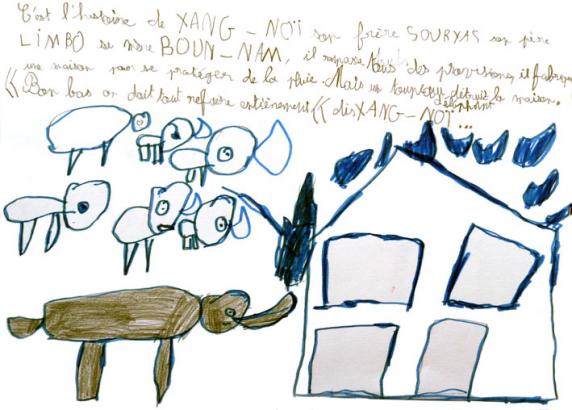 C'est l'histoire de XANG-NOÏ son frère SOURYAS son père
LIMBO sa mère BOUN-NAM, il ramasse tous des provisions, il fabrique
une maison pour se protéger de la pluie. Mais un troupeau d'éléphant détruit la maison.
« Bon bas on doit tout refaire entièrement « dis XANG-NOÏ...